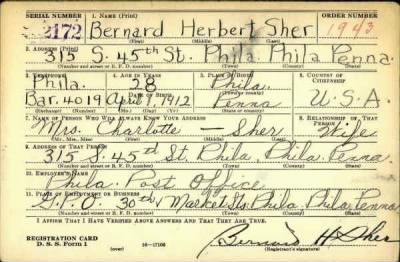 SERIAL NUMBER 1. NAME (Print) ORDER NUMBER
2172 Bernard Herbert Sher 1943
(First) (Middle) (Last)
2. ADDRESS (Print)
315 S. 45th St. Phila. Phila. Penna.
(Number and street or R. F. D. number) (Town) (County) (State)
3. TELEPHONE 4. AGE IN YEARS 5. PLACE OF BIRTH 6. COUNTRY OF CITIZENSHIP
Phila. 28 Phila.
DATE OF BIRTH (Town or county)
Bar. 4019 April 9, 1912 Penna U.S.A.
(Exchange) (Number) (Mo.) (Day) (Yr.) (State or country)
7. NAME OF PERSON WHO WILL ALWAYS KNOW YOUR ADDRESS 8. RELATIONSHIP OF THAT PERSON
Mrs. Charlotte — Sher Wife
(Mr., Mrs., Miss) (First) (Middle) (Last)
9. ADDRESS OF THAT PERSON
315 S. 45th St. Phila. Phila. Penna.
(Number and street or R. F. D. number) (Town) (County) (State)
10. EMPLOYER'S NAME
Phila. Post Office
11. PLACE OF EMPLOYMENT OR BUSINESS
G.P.O. 30th & Market Sts. Phila. Phila. Penna
(Number and street or R. F. D. number) (Town) (County) (State)
I AFFIRM THAT I HAVE VERIFIED ABOVE ANSWERS AND THAT THEY ARE TRUE.
REGISTRATION CARD
D. S. S. Form 1 (over) 16—17105 Bernard H Sher
(Registrant's signature)